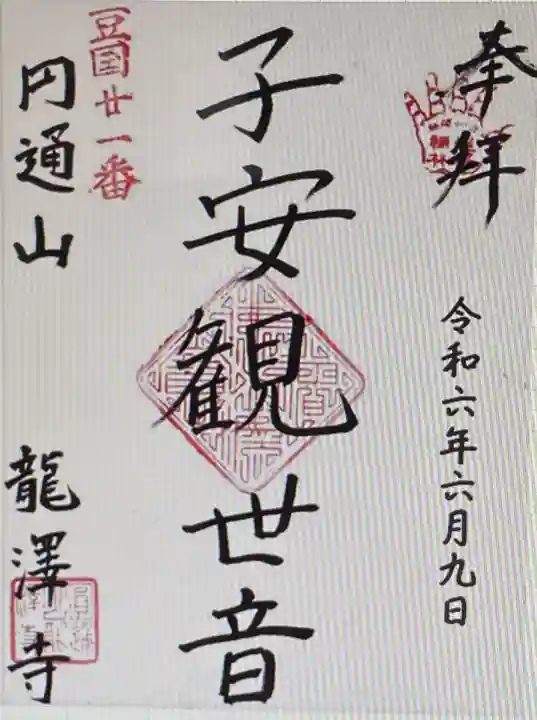 奉拝
令和六年六月九日
子安観世音
豆国廿一番
円通山 龍澤寺